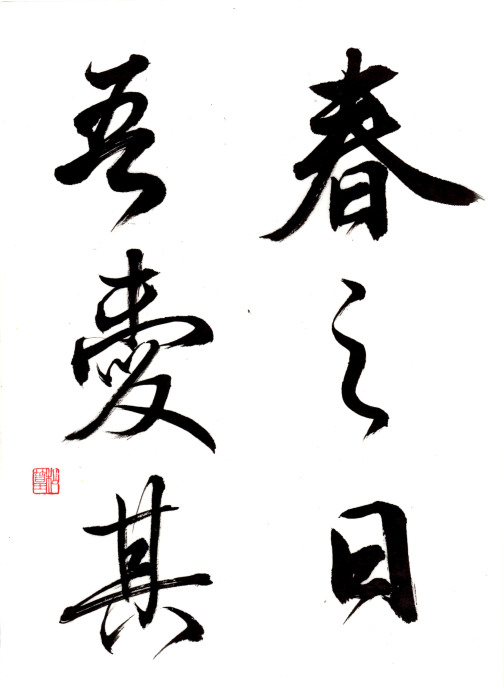 春之日
吾愛其